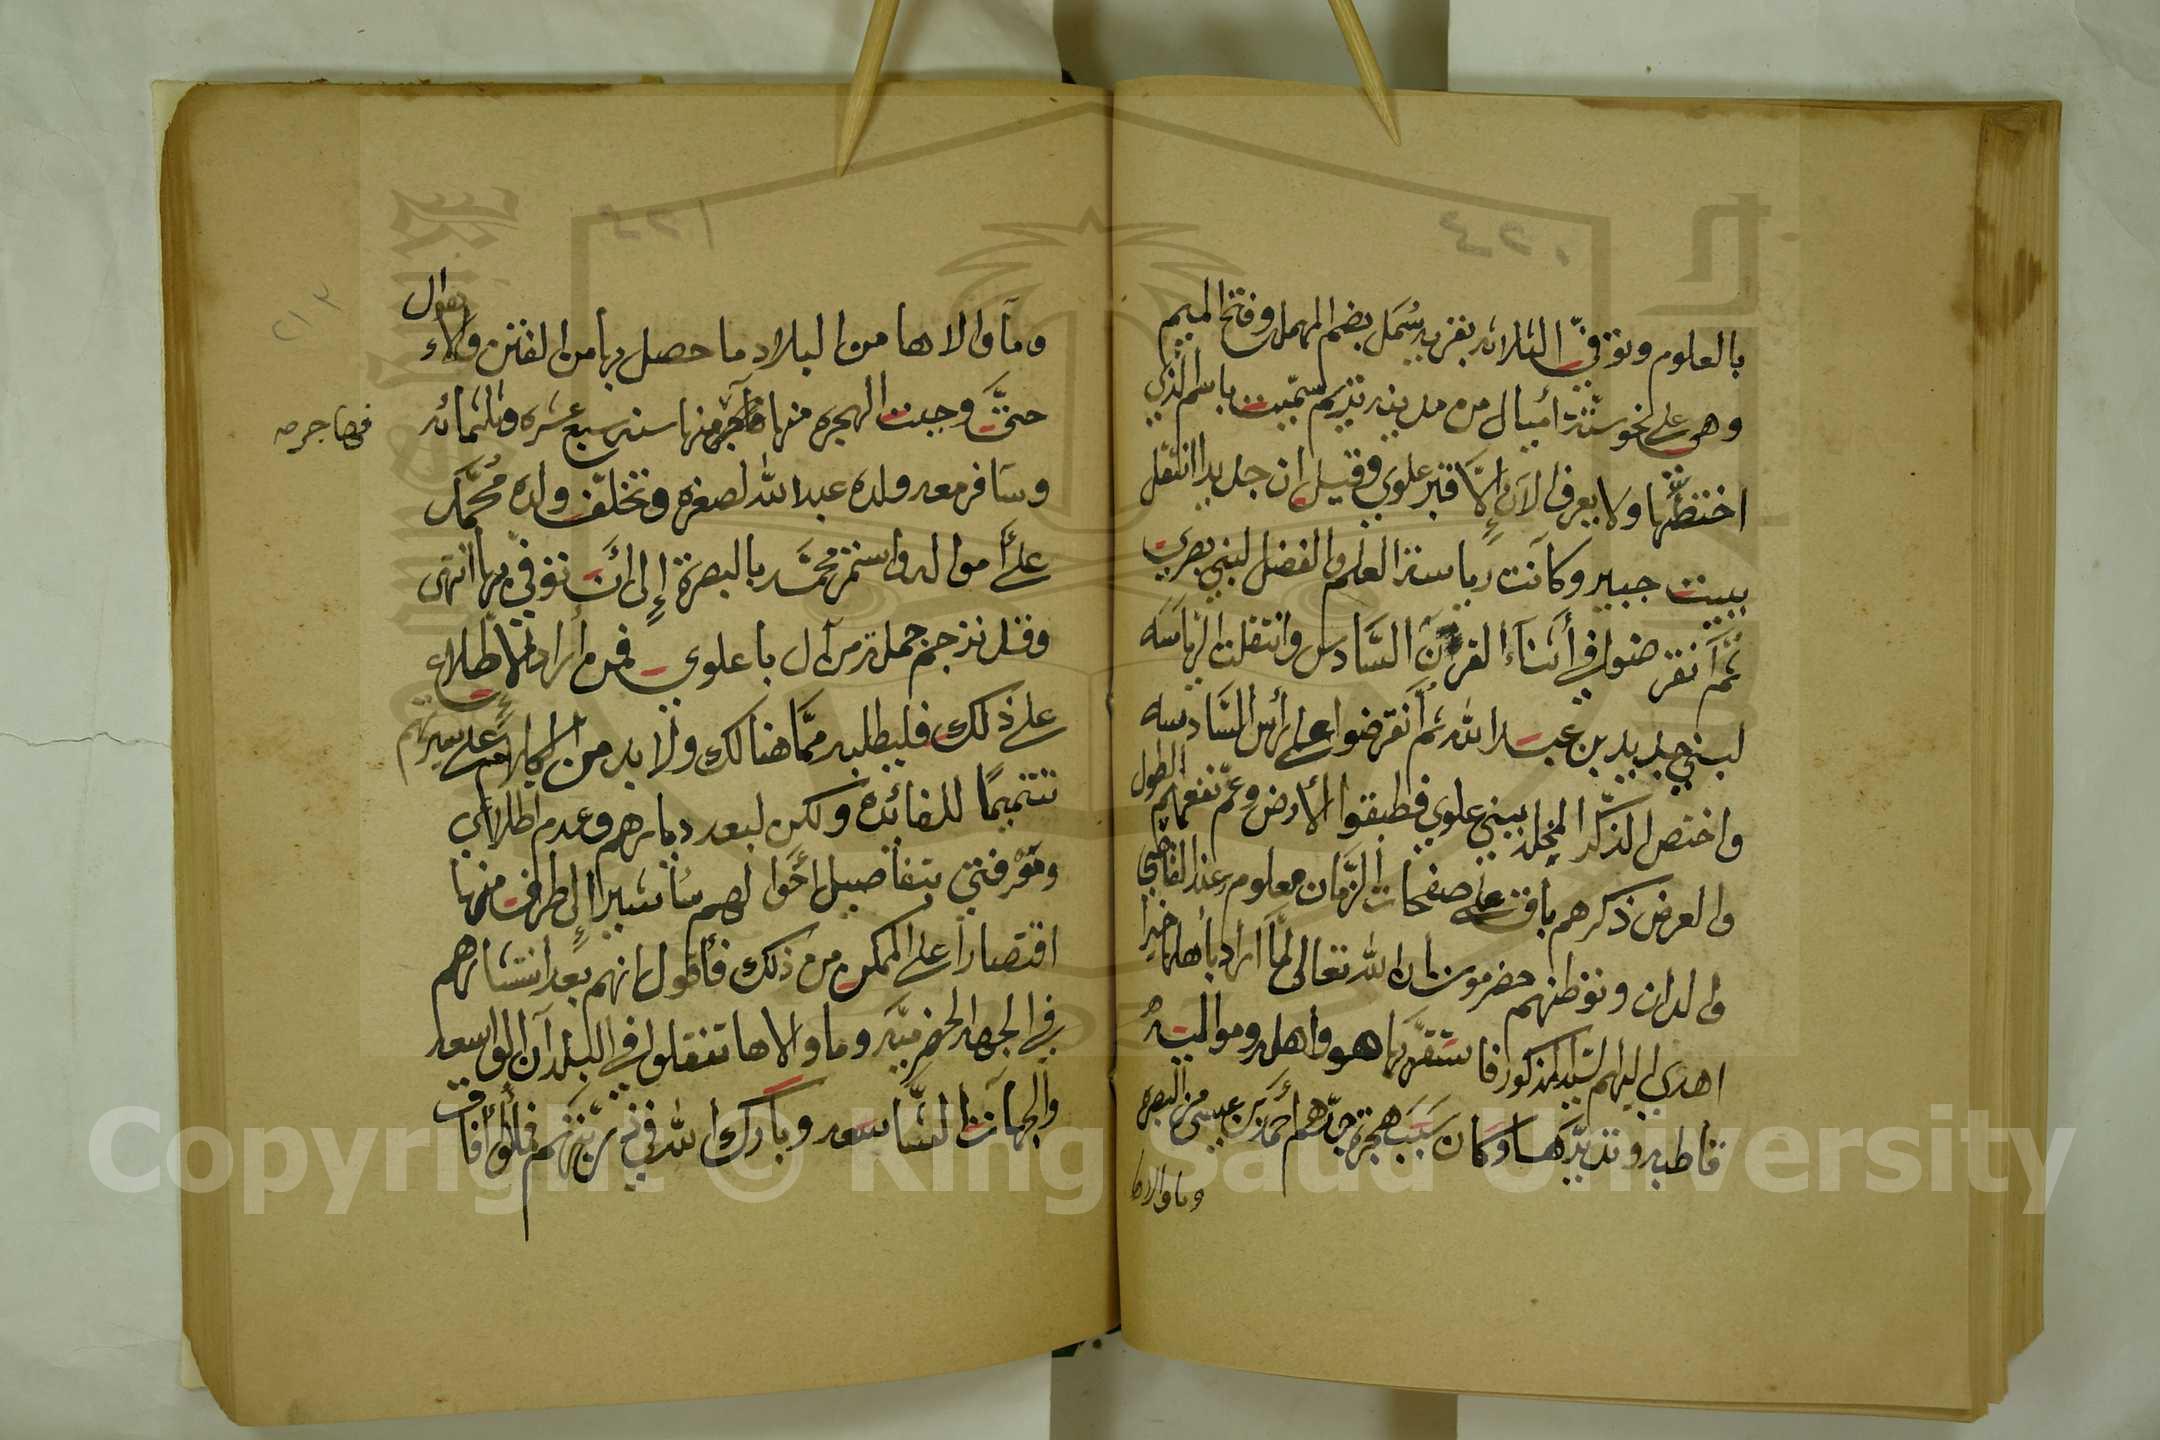 بالعلوم وتوفي الثلاثه بقريه سُمَل بضم المهمله وفتح الميم
وهي على نحو ستة أميال من مدينه تريم سميت باسم الذي
اختطّها ولا يعرف الآن إلّا قبر علوي وقيل ان جديدا انتقل
ببيت جبير وكانت رياسة العلم والفضل لبني بصري
ثم آنقرضوا في أثناء القرن السَّادس وانتقلت الرئاسه
لبني جديد بن عبد الله ثم آنقرضوا على رأس السَّادسه
واختص الذكر المخلد ببني علوي فطبقوا الأرض وعمّ نفعهم الطول
والعرض ذكرهم باق على صفحات الزّمان معلوم عند القاصي
والدان وتوطنهم حضرموت ان الله تعالى لمّا اراد بأهلها خيرا
اهدى اليهم السّيد المذكور فاستقر بها هو وأهله ومواليه
قاطبه وتديّرها وكان سَبَب هجرة جدّهم أحمد بن عيسى من البصره
وما والاها
وما والاها من البلاد ما حصل بها من الفتن والأهوال
حتَّى وجبت الهجره منها فهاجر منها سنه سبع عشره وثلثمائه
فهاجر صه
وسَافر معه ولده عبد الله لصغره وتخلّف ولده مُحمَّد
على أمواله واستمر محمَّد بالبصرة إلى أنَ توفي بها انتهى
وقد ترجم جملة من آل باعلوي فمن أراد الاطلاع
على ذلك فليطلبه ممَّا هنالك ولا بد من الكلام على سيرتهم
تتميمًا للفائده ولكن لبعد ديارهم وعدم اطلاعي
ومعرفتي بتفاصيل أحوالهم سأشير إلى طرف منها
اقتصارًا على الممكن من ذلك فأقول انهم بعد انتشارهم
في الجهه الحضرميَّه وما والاها تنقلوا في البلدان الواسعه
والجهات الشَّاسعه وبارك الله في ذرّيّتهم فملؤا آفاق
٢١٣
Copyright © King Saud University